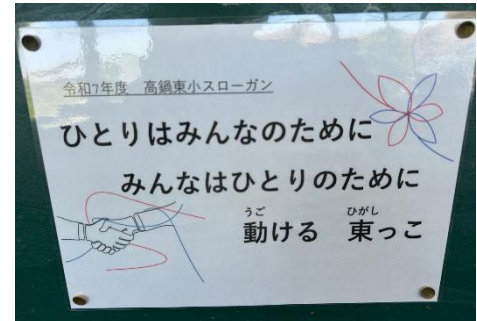 令和7年度　高鍋東小スローガン
ひとりはみんなのために
みんなはひとりのために
動ける　東っこ